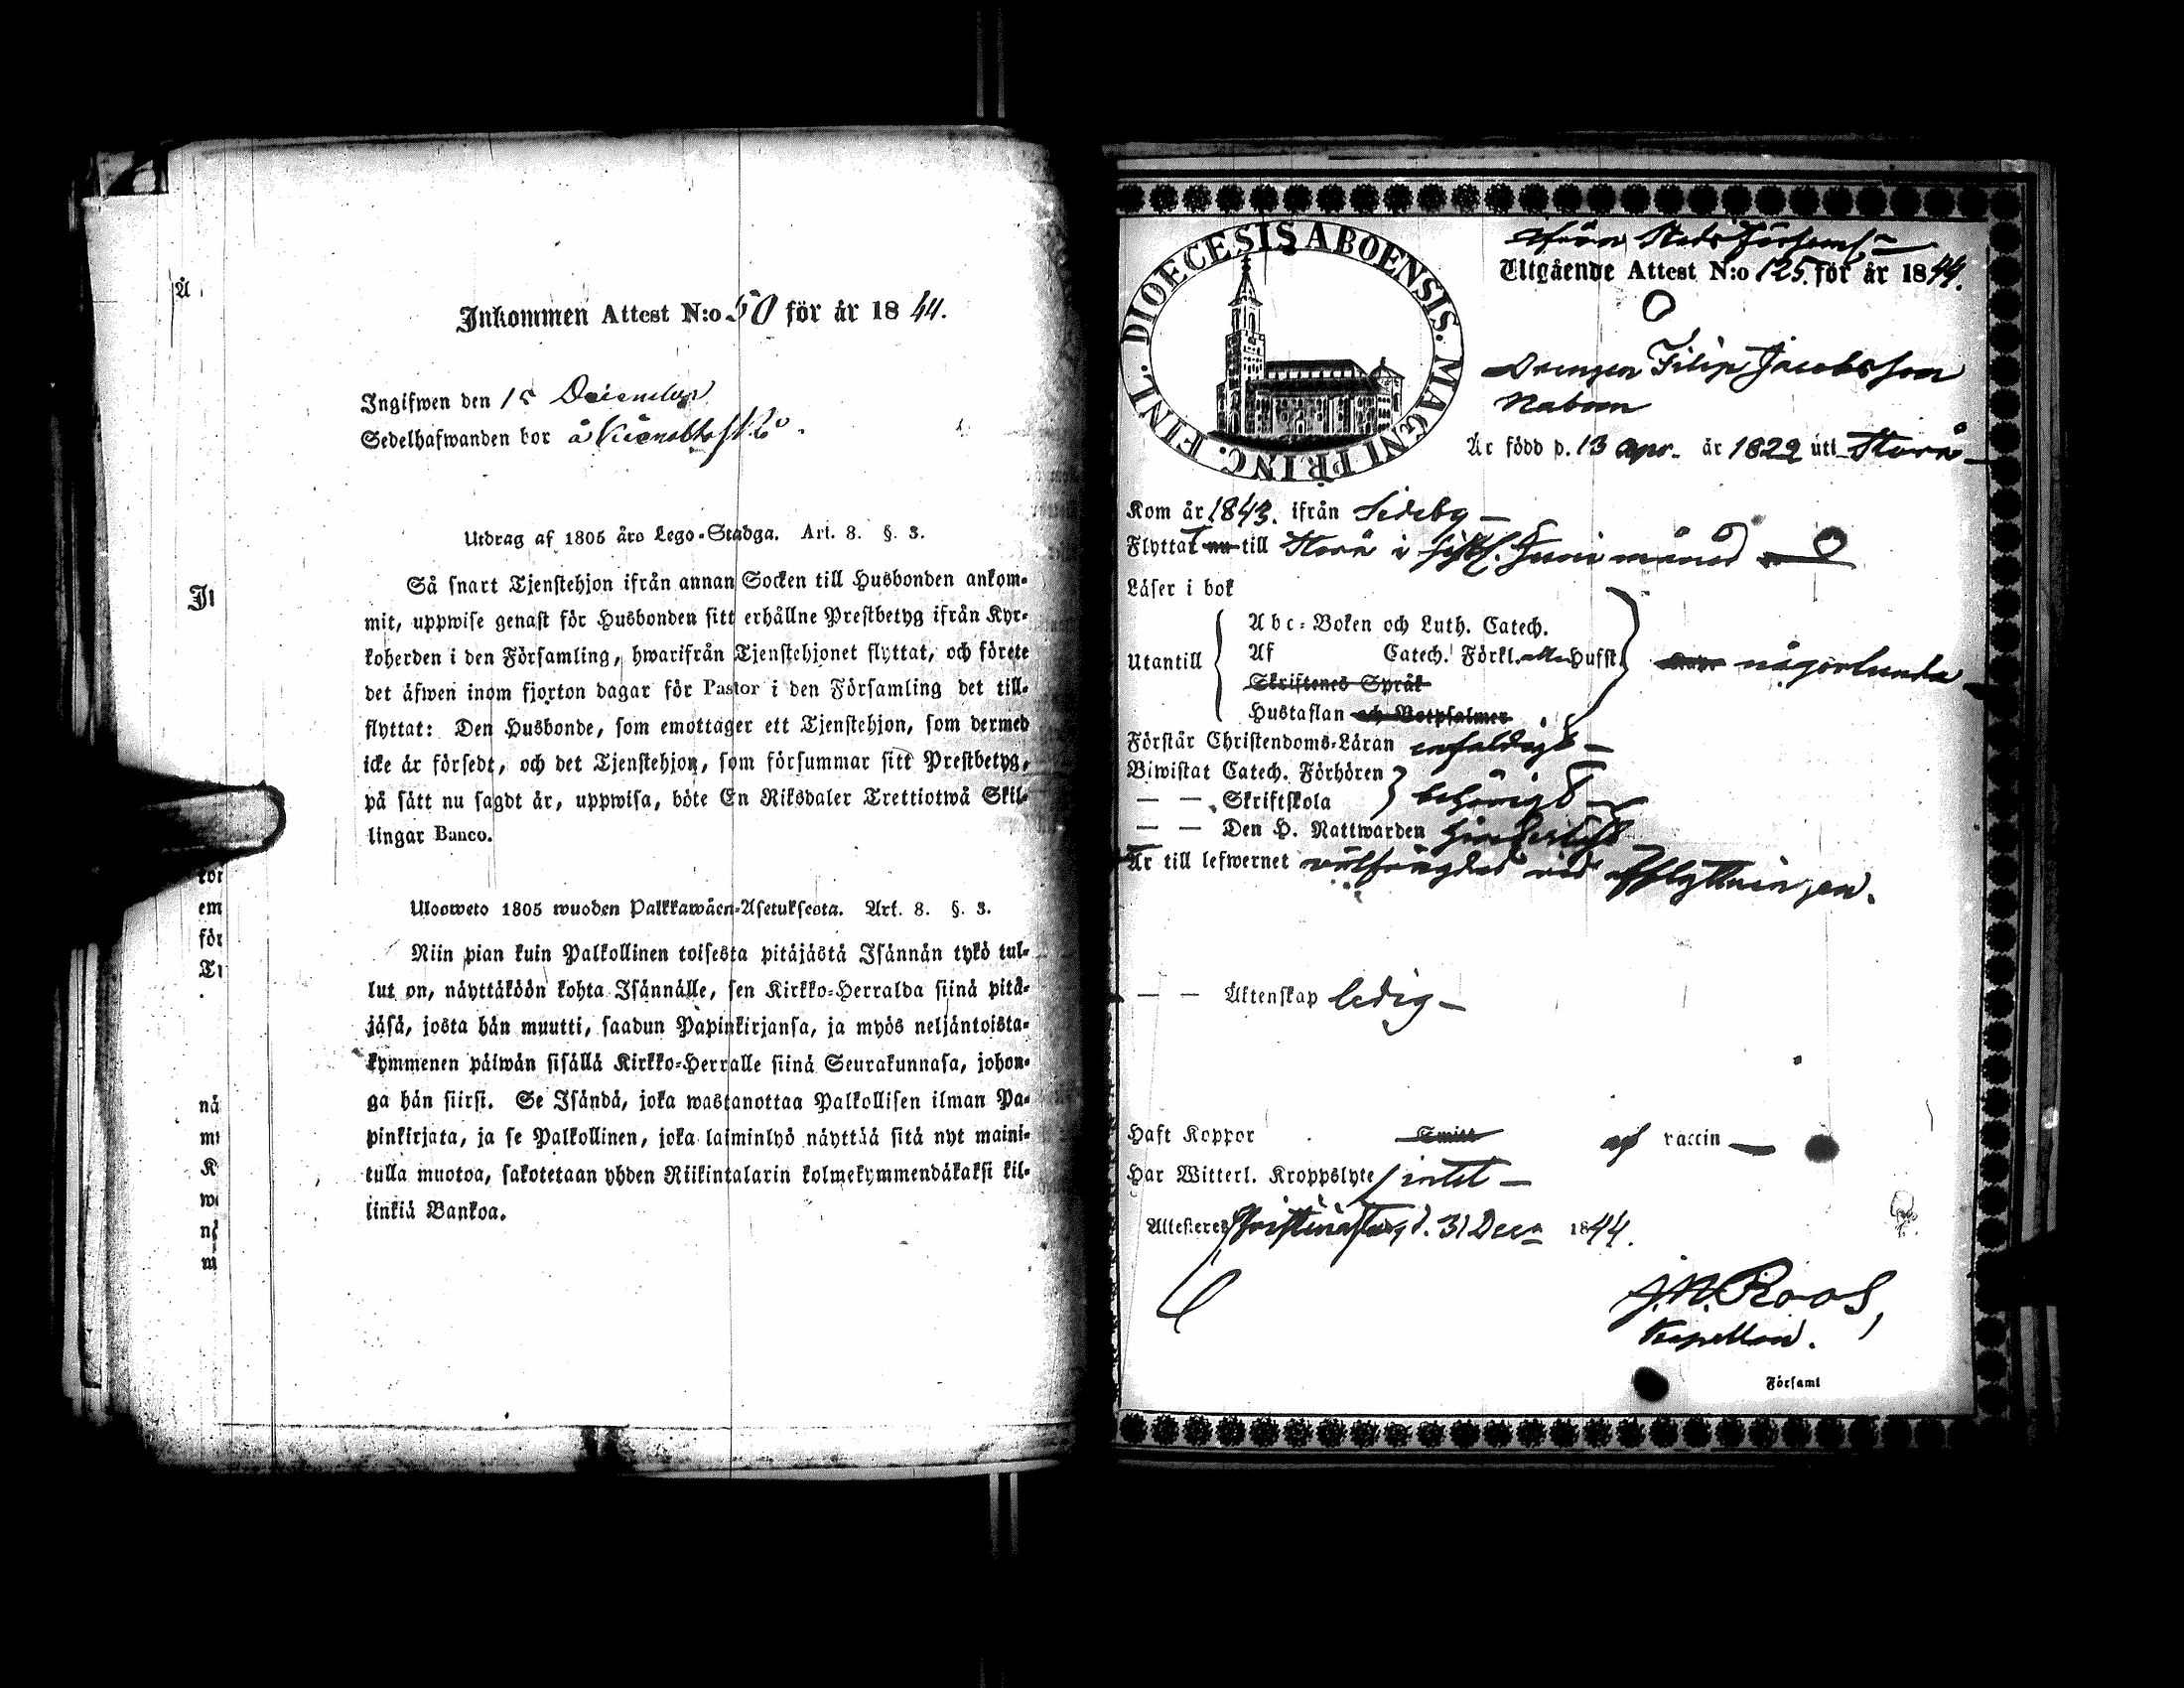 Inkommen Attest N:o 50 för år 1844.
Ingifwen den 15 December
Sedelhafwanden bor å
Utdrag af 1805 års Lego-Stadga. Art. 8. §. 3.
Så snart Tjenstehjon ifrån annan Socken till Husbonden ankom-
mit, uppwise genast för Husbonden sitt erhållne Prestbetyg ifrån Kyr-
koherden i den Församling, hwarifrån Tjenstehjonet flyttat, och förete
det äfwen inom fjorton dagar för Pastor i den Församling det till-
flyttat: Den Husbonde, som emottager ett Tjenstehjon, som dermed
icke är försedt, och det Tjenstehjon, som försummar sitt Prestbetyg,
på sätt nu sagdt är, uppwisa, böte En Riksdaler Trettiotwå Skil-
lingar Banco.
Ulosweto 1805 wuoden Palkkawäen-Asetuksesta. Art. 8. §. 3.
Niin pian kuin Palkollinen toisesta pitäjästä Isännän tykö tul-
lut on, näyttäköön kohta Isännälle, sen Kirkko-Herralda siinä pitä-
jäsä, josta hän muutti, saadun Papinkirjansa, ja myös neljäntoista-
kymmenen päiwän sisällä Kirkko-Herralle siinä Seurakunnasa, johon-
ga hän siirsi. Se Isändä, joka wastanottaa Palkollisen ilman Pa-
pinkirjata, ja se Palkollinen, joka laiminlyö näyttää sitä nyt maini-
tulla muotoa, sakotetaan yhden Riikintalarin kolmekymmendäkaksi kil-
linkiä Bankoa.
DIOECESIS ABOENSIS. MAGNI PRINC. FINL.
ifrån Stads Församl:
Utgående Attest N:o 125. för år 1844.
Drengen Filip Jacobsson
Nabom
Är född d. 13 apr. år 1822 uti Storå
Kom år 1843. ifrån Sideby
Flyttat nu till Storå i sistl. Junii månad
Läser i bok
Utantill
Abc-Boken och Luth. Catech.
Af Catech. Förkl. eller Husfl.
Skriftenes Språk
Hustaflan och Botpsalmer
någorlunda
Förstår Christendoms-Läran enfaldigt
Biwistat Catech. Förhören
— — Skriftskola
behörigt
— — Den H. Nattwarden
Är till lefwernet wälfrägdad wid afflyttningen.
— — Äktenskap ledig
Haft Koppor Smitt af vaccin
Har Witterl. Kroppslyte intet
Attesteres Christinestad d. 31 Dec: 1844.
J. N. Roos,
Kapellan.
Församl